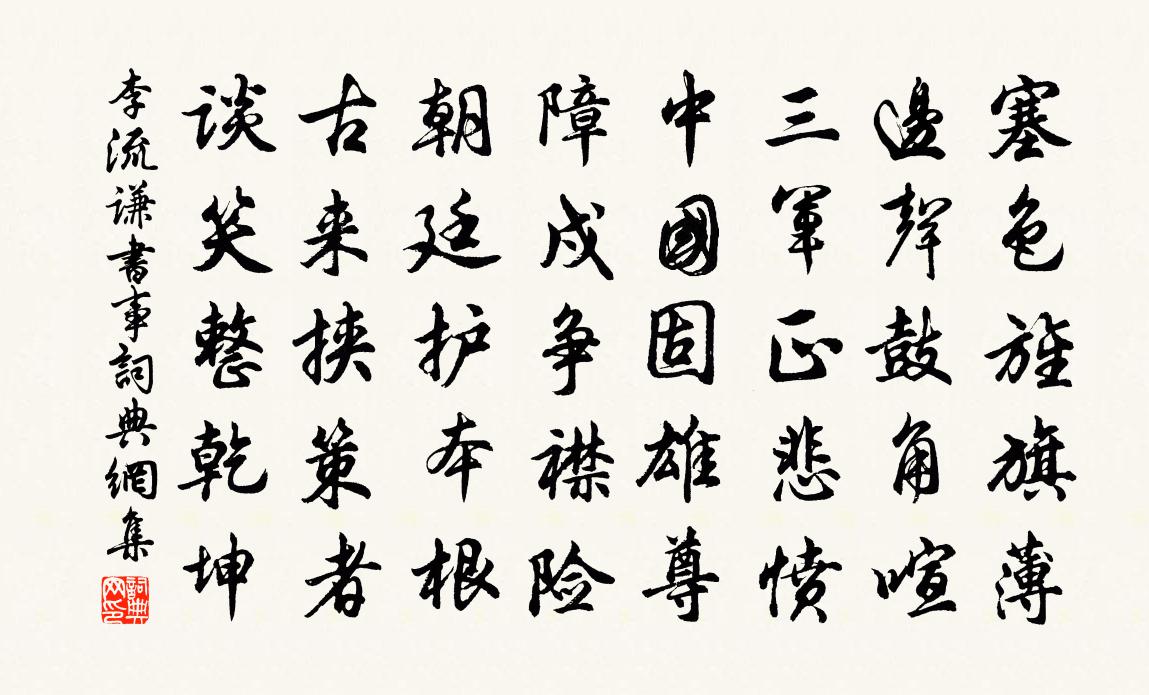 塞色旌旗薄
邊聲鼓角喧
三軍正悲愤
中國固雄尊
障戍争襟险
朝廷护本根
古来挟策者
谈笑整乾坤
李流谦書事詞典網集
詞典网印